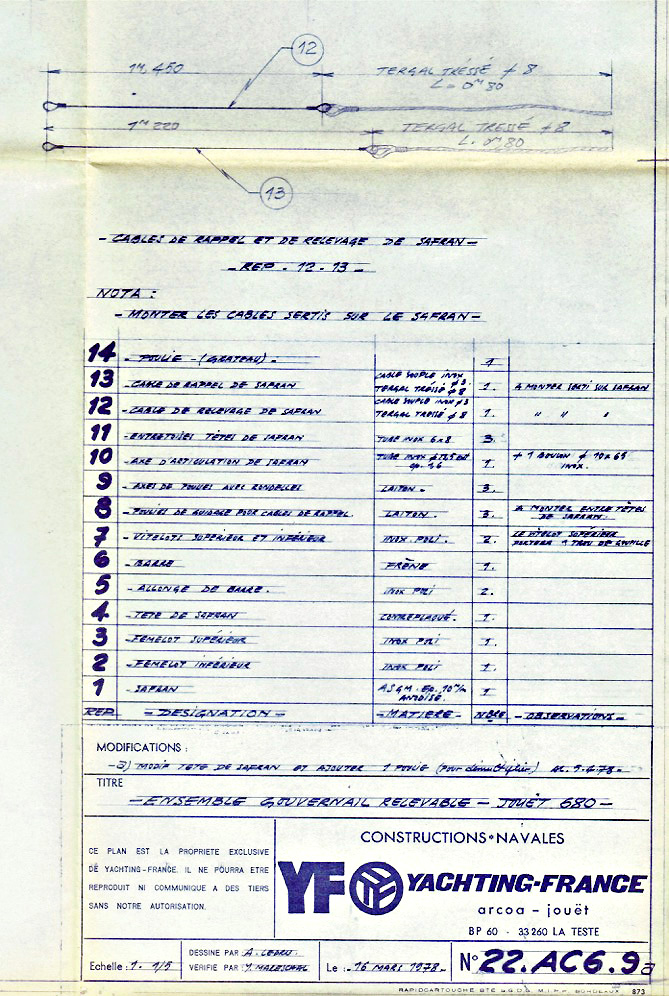 12
1m,450
TERGAL TRÉSSÉ ∮ 8
L = 0m80
1m 220
TERGAL TRESSÉ ∮ 8
L. 0m80
13
- CABLES DE RAPPEL ET DE RELEVAGE DE SAFRAN -
- REP. 12 - 13 -
NOTA :
- MONTER LES CABLES SERTIS SUR LE SAFRAN -
14 - POULIE - (GRATEAU) - 1
13 - CABLE DE RAPPEL DE SAFRAN CABLE SOUPLE INOX ∮ 3 TERGAL TRÉSSÉ ∮ 8 1. A MONTER SERTI SUR SAFRAN
12 - CABLE DE RELEVAGE DE SAFRAN CABLE SOUPLE INOX ∮ 3 TERGAL TRESSÉ ∮ 8 1. " " "
11 - ENTRETOISES TÊTES DE SAFRAN TUBE INOX 6x8 3.
10 - AXE D'ARTICULATION DE SAFRAN TUBE INOX ep. 1,6 1. + 1 BOULON ∮ 10 x 65 INOX.
9 - AXES DE POULIES AVEC RONDELLES LAITON - 3.
8 - POULIES DE GUIDAGE POUR CABLES DE RAPPEL. LAITON - 3. A MONTER ENTRE TÊTES DE SAFRAN.
7 - VITELOTS SUPERIEUR ET INFÉRIEUR INOX POLI. 2. LE VITELOT SUPÉRIEUR PORTERA 1 TROU DE GOUPILLE
6 - BARRE FRÊNE 1.
5 - ALLONGE DE BARRE. INOX POLI 2.
4 - TETE DE SAFRAN CONTREPLAQUÉ. 1.
3 - FEMELOT SUPÉRIEUR INOX POLI 1.
2 - FEMELOT INFERIEUR INOX POLI 1.
1 - SAFRAN ASGM. Ep. 10m/m ANODISÉ. 1
REP. - DESIGNATION - - MATIERE - NBRE - OBSERVATIONS -
MODIFICATIONS :
- a) MODIF TETE DE SAFRAN ET AJOUTER 1 POULIE
TITRE
- ENSEMBLE GOUVERNAIL RELEVABLE - JOUËT 680 -
CE PLAN EST LA PROPRIETE EXCLUSIVE
DE YACHTING-FRANCE. IL NE POURRA ETRE
REPRODUIT NI COMMUNIQUE A DES TIERS
SANS NOTRE AUTORISATION.
CONSTRUCTIONS•NAVALES
YF YACHTING-FRANCE
arcoa - jouët
BP 60 - 33260 LA TESTE
Echelle : 1 - 1/5
DESSINE PAR A. LEDRU.
VERIFIE PAR : Y. MARESCHAL
Le : 16 MARS 1978 -
N° 22.AC6.9a
RAPIDCARTOUCHE STE S.G.D.G. M.I.P.P. BORDEAUX 873